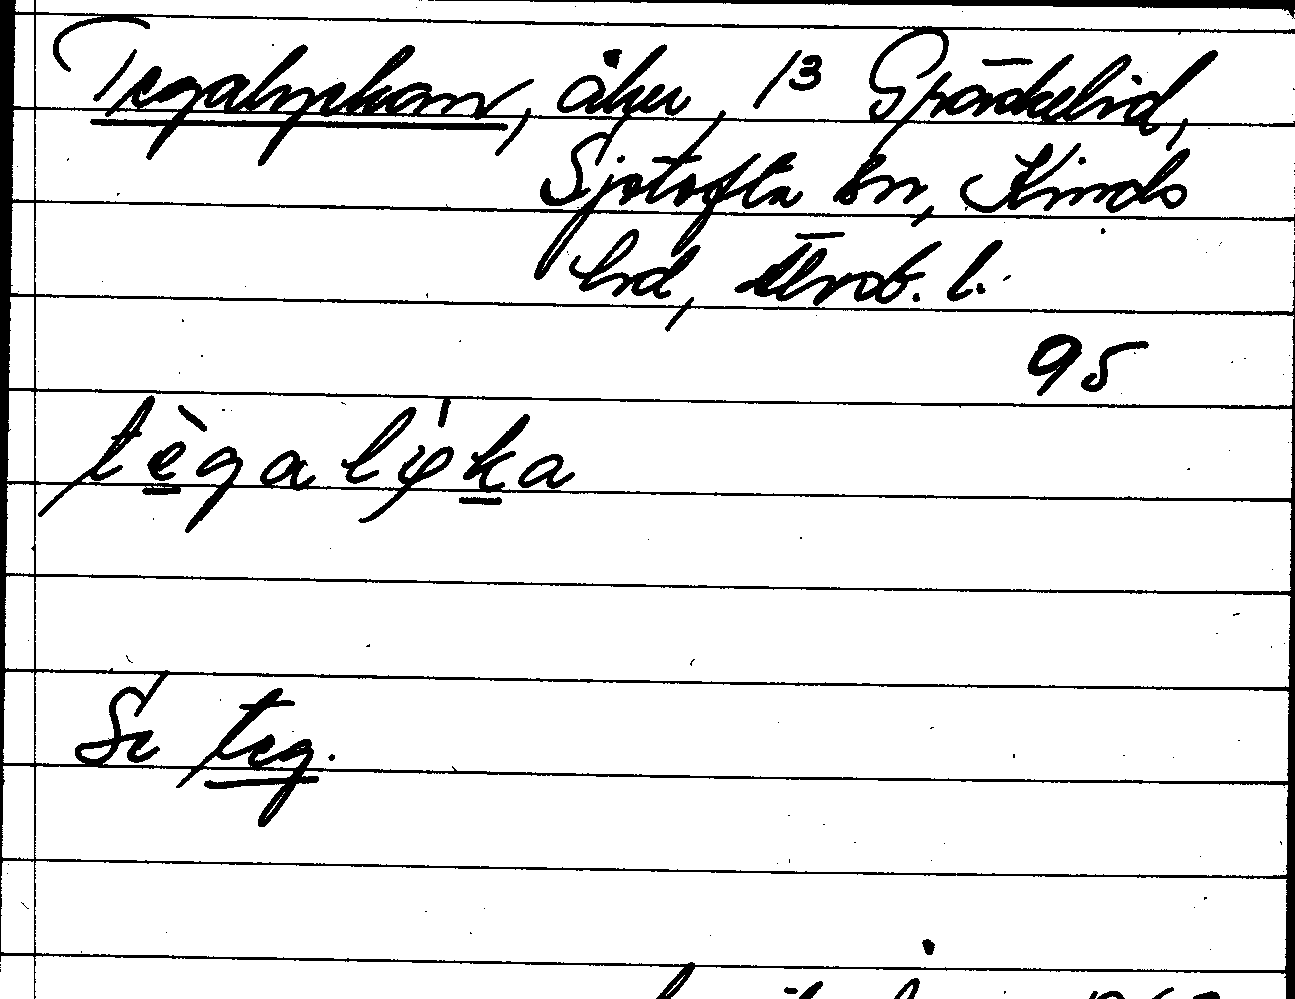 Tegalyckan, åker, 1³ Spräckelid,
Sjötofta sn, Kinds
hd, Älvsb. l.
95
tègalýka
Se teg.